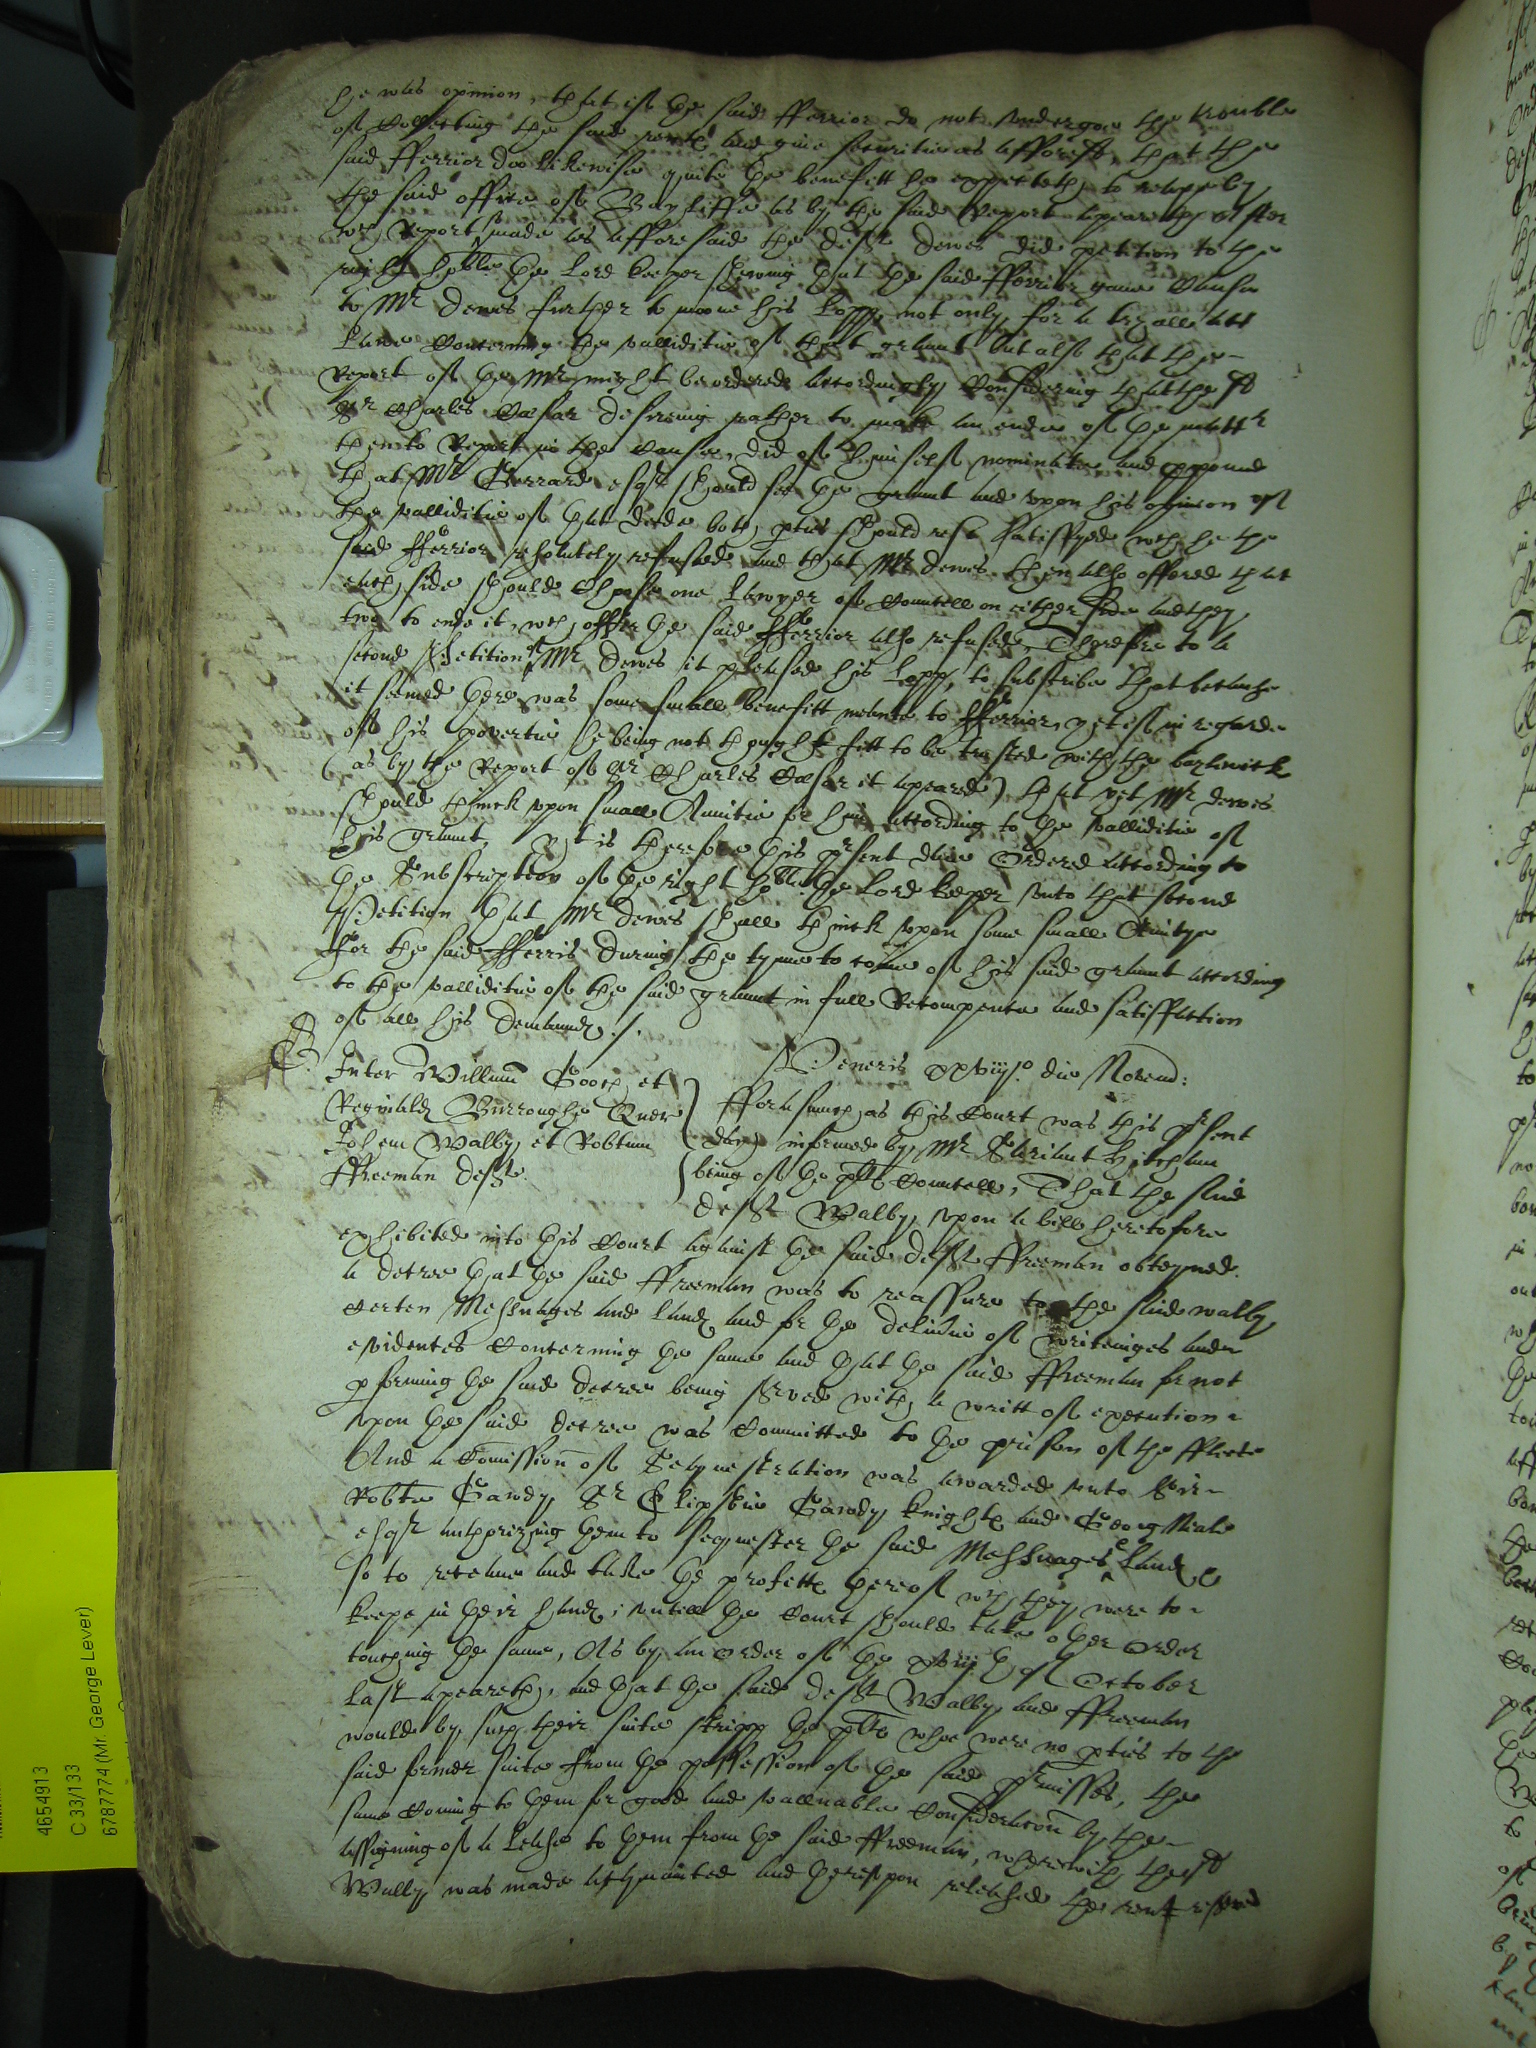 he was opinion, that if the said Fferrior do not undergoe the trouble
of Collecting the said rente and give securitie as afforesd, that the
said Fferrior doo likewise quite the benefitt he expecteth to reape by
the said office of Bayliffe as by the said Report apeareth After
wch Report made as afforesaid the deft Dewes did petition to the
right hoble the Lord keeper shewing that the said Fferrior gave Cause
to Mr Dewes further to moove his Lopp, not only for a tryall att
Lawe Concerning the valliditie of that graunt but also that the
Report of the Mr might be ordered accordingly Considering that the sd
Sr Charles Cæsar desireing rather to make an ende of the mattr
then to Report in the Cause, did of himself nominate and ppound
that Mr Gerrard esqr should see the graunt and upon his opinion of
the valliditie of that deede both pties should rest sattisfyed wch he the
said Fferrior resolutely refused and that Mr Dewes then also offered that
each side should Choose one Lawyer of Councell on either side and they
two to ende it, wch offer the said Fferrior also refused, Therefore to a
second Petition of Mr Dewes it pleased his Lopp, to subscribe that because
it seemed there was some small benefitt meante to Fferrior, yet if in regarde
of his povertie he being not thought fitt to be trusted with the baylewick
(as by the Report of Sr Charles Cæsar it apeared) that yet Mr Dewes
should thinck upon small Anuitie for him according to the valliditie of
his graunt, It is therefore this psent daie Ordered according to
the Subscription of the right hoble the Lord keeper unto that second
Petition that Mr Dewes shall thinck upon some small Anuitye
for the said Fferris during the tyme to come of his said graunt according
to the valliditie of the said graunt in full Recompence and satisffaction
of all his demaundes ./.
B.
Veneris xxviijo. die Novemb:
Inter Willmū Gooch et
Reginald Burroughe Quer
Johem Walby et Robtum
Ffreeman Deft.
Fforasmuch as this Court was this psent
day informed by Mr Seriant Hitcham
being of the plts Councell, That the said
deft Walby upon a bill heretofore
exhibited into this Court against the said deft Ffreeman obteyned
a decree that the said Ffreeman was to reassure to the said Walby
Certen Messuages and Landes and for the deliverie of writeinges and
evidences Concerning the same and that the said Ffreeman for not
pforming the said decree being served with a writt of execution
upon the said decree was Committed to the prison of the Ffleete
And a Comission of Sequestration was awarded unto Sir
Robte Gawdy, Sr Clipsbie Gawdy knightes and Georg
esqr authorizing them to sequester the said Messuages & Landes &
so to receave and take the profitts thereof wch they were to
keepe in their handes untill the Court should take other order
touching the same, As by an order of the xviijth of October
last apeareth, and that the said deft Walby and Ffreeman
would by such their suite stripp the plts whoe were no pties to the
said former suite from the possession of the said pmisses, the
same Coming to them for good and valluable Consideracon by the
assigning of a Lease to them from the said Ffreeman, wherewith the sd
Wally was made acquainted and thereupon released the rent reserved
4654913
C 33/133
6787774 (Mr. George Lever)